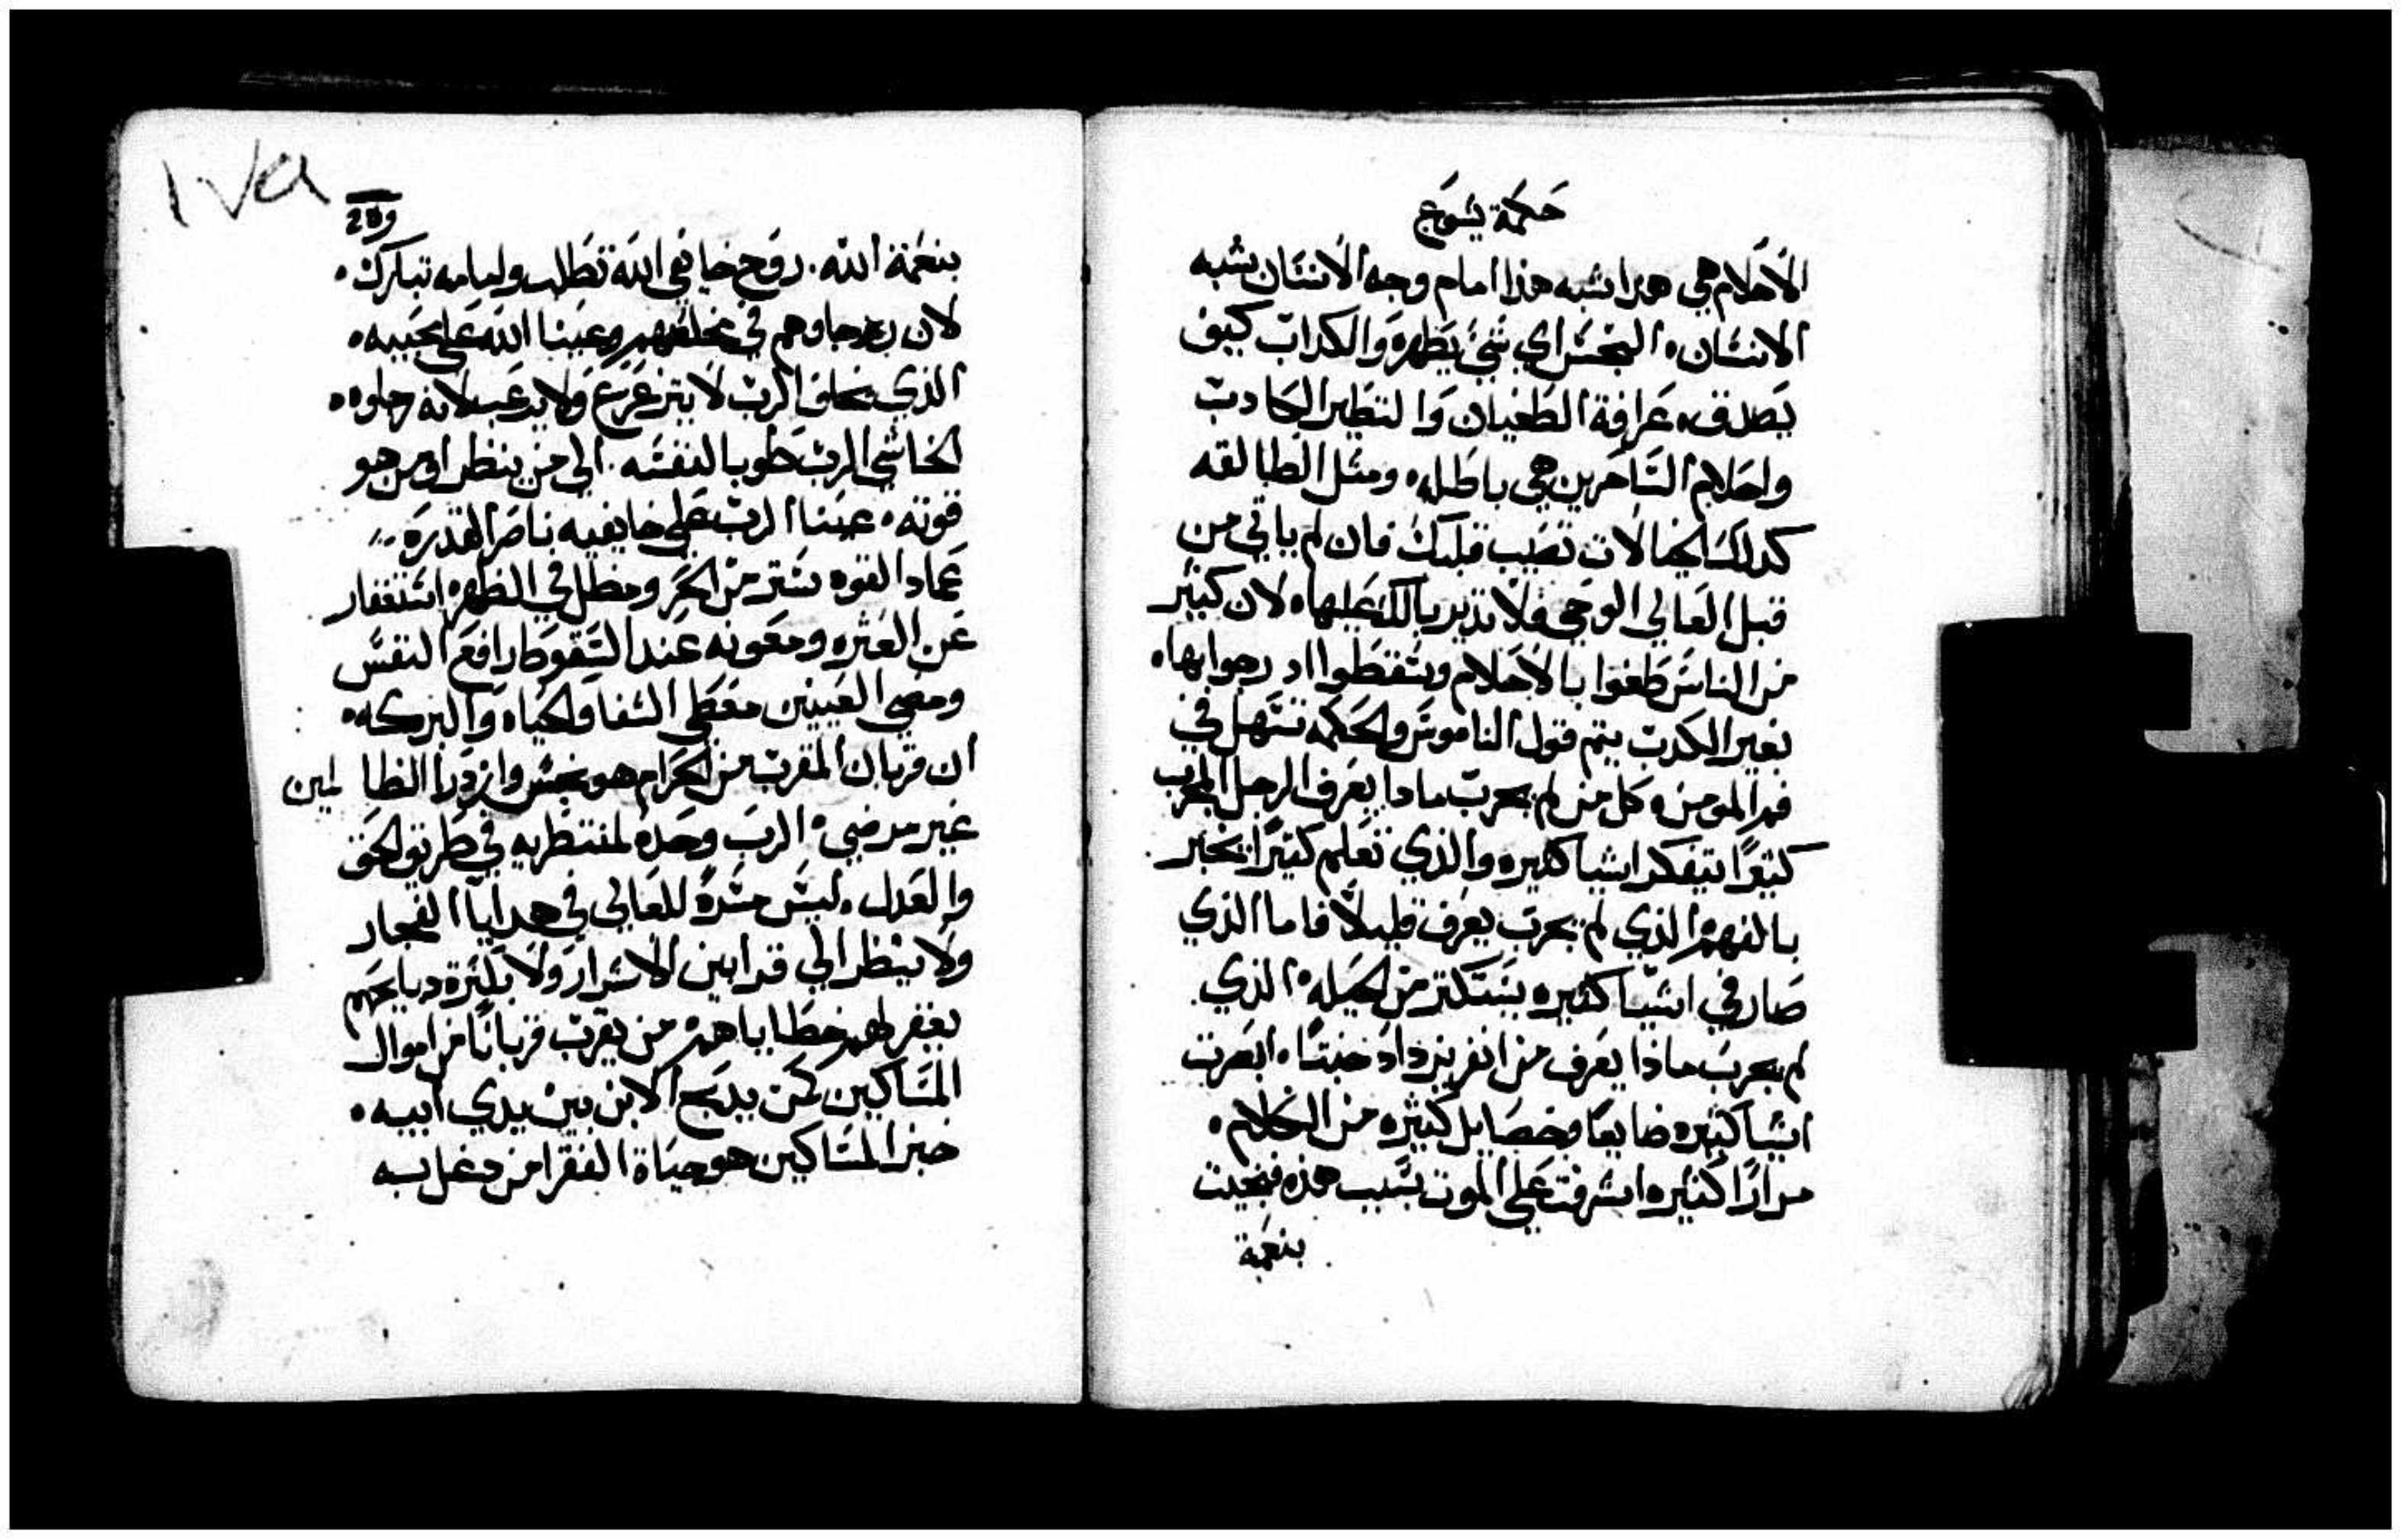 حكمة يشوع
الاحلام هي هدا شبه هذا امام وجه الانسان شبه
الانسان، النجس اي شي يطهره والكداب كيف
يصدق، عرافة الطغيان والتطير الكادب
واحلام الساحرين هي باطله، ومثل الطالقه
كدلك الخيالات تصيب قلبك فان لم ياتي من
قبل العالي الوحي فلا تدير بالك عليها، لان كثير
من الناس طغوا بالاحلام وسقطوا اد رجوا بها،
بغير الكدب يتم قول الناموس والحكمه تسهل في
فم المومن، كل من لم يجرب مادا يعرف الرجل المجرب
كثيرًا يتفكر اشيا كثيره والذي تعلم كثيرًا يخبر
بالفهم، الذي لم يجرب يعرف قليلًا فاما الذي
صار في اشيا كثيره يستكتر من الحيله، الذي
لم يجرب ماذا يعرف من انغر يزداد خبتًا، ابصرت
اشيا كثيره ضايعًا وخصايل كثيره من الكلام،
مرارًا كثيره اشرفت على الموت بسبب هذه فنجيت
بنعمة
١٧٩
بنعمة الله. روح خايفي الله تطلب ولهامه تبارك،
لان رجاوهم في مخلصهم وعينا الله على محبيه،
الذي يخاف الرب لا يتزعزع ولا يرعب لانه رجاوه،
الخاشي الرب طوبا لنفسه. الي من ينظر او من هو
قوته، عينا الرب على خايفيه ناصر القدره
عماد القوه ستر من الحر ومظل في الظهر، استغفار
عن العثره ومعونه عند السقوط، رافع النفس
ومضي العينين معطي الشفا والحياه والبركه،
ان قربان المقرب من الحرام هو نجس وازدرا الظالمين
غير مرضي، الرب وحده لمنتظريه في طريق الحق
والعدل، ليس مسرة للعالي في هدايا الفجار
ولا ينظر الي قرابين الاشرار ولا بكثرة دبايحهم
يغفر لهم خطاياهم، من يقرب قربانًا من اموال
المساكين كمن يدبح الابن بين يدي ابيه،
خبز المساكين هو حياة الفقرا من دغل به